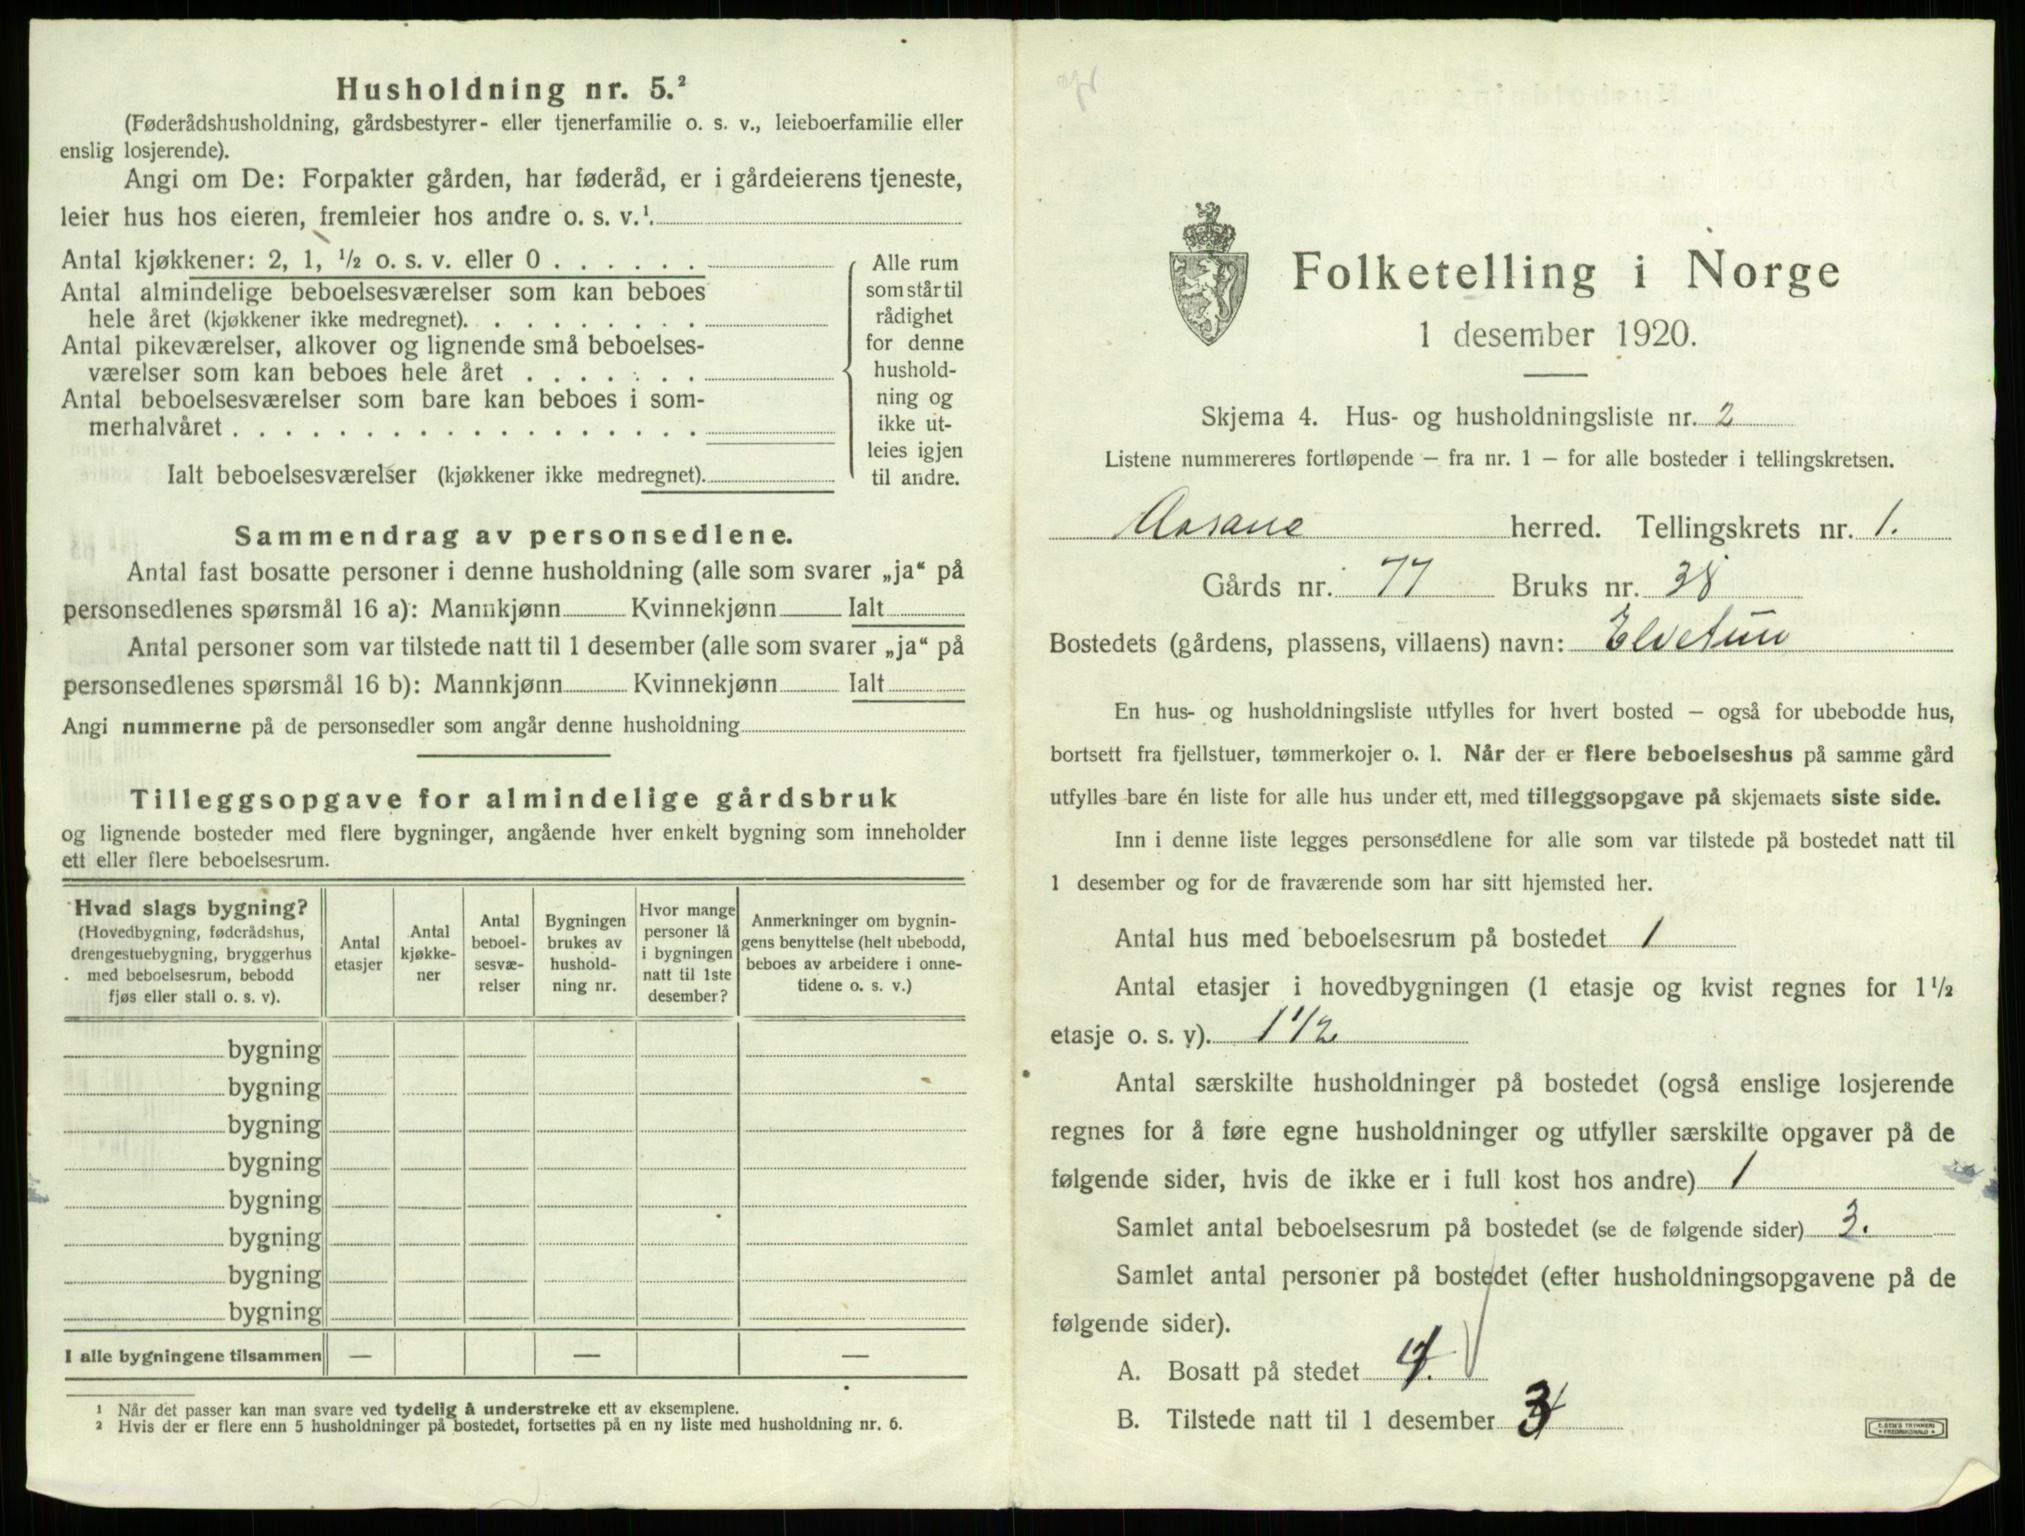 Husholdning nr. 5.²
(Føderådshusholdning, gårdsbestyrer- eller tjenerfamilie o. s. v., leieboerfamilie eller
enslig losjerende).
Angi om De: Forpakter gården, har føderåd, er i gårdeierens tjeneste,
leier hus hos eieren, fremleier hos andre o. s. v.¹.
Antal kjøkkener: 2, 1, ½ o. s. v. eller 0 . . . . . .
Antal almindelige beboelsesværelser som kan beboes
hele året (kjøkkener ikke medregnet). . . . . . . . .
Antal pikeværelser, alkover og lignende små beboelses-
værelser som kan beboes hele året . . . . . . .
Antal beboelsesværelser som bare kan beboes i som-
merhalvåret . . . . . . . . . . . . . . . . . .
Ialt beboelsesværelser (kjøkkener ikke medregnet).
Alle rum
som står til
rådighet
for denne
hushold-
ning og
ikke ut-
leies igjen
til andre.
Sammendrag av personsedlene.
Antal fast bosatte personer i denne husholdning (alle som svarer „ja“ på
personsedlenes spørsmål 16 a): Mannkjønn Kvinnekjønn Ialt
Antal personer som var tilstede natt til 1 desember (alle som svarer „ja“ på
personsedlenes spørsmål 16 b): Mannkjønn Kvinnekjønn Ialt
Angi nummerne på de personsedler som angår denne husholdning
Tilleggsopgave for almindelige gårdsbruk
og lignende bosteder med flere bygninger, angående hver enkelt bygning som inneholder
ett eller flere beboelsesrum.
Hvad slags bygning?
(Hovedbygning, føderådshus,
drengestuebygning, bryggerhus
med beboelsesrum, bebodd
fjøs eller stall o. s. v).
Antal
etasjer
Antal
kjøkke-
ner
Antal
beboel-
sesvæ-
relser
Bygningen
brukes av
hushold-
ning nr.
Hvor mange
personer lå
i bygningen
natt til 1ste
desember?
Anmerkninger om bygnin-
gens benyttelse (helt ubebodd,
beboes av arbeidere i onne-
tidene o. s. v.)
bygning
bygning
bygning
bygning
bygning
bygning
bygning
bygning
I alle bygningene tilsammen — — —
¹ Når det passer kan man svare ved tydelig å understreke ett av eksemplene.
² Hvis der er flere enn 5 husholdninger på bostedet, fortsettes på en ny liste med husholdning nr. 6.
Folketelling i Norge
1 desember 1920.
Skjema 4. Hus- og husholdningsliste nr. 2
Listene nummereres fortløpende – fra nr. 1 – for alle bosteder i tellingskretsen.
Aasane herred. Tellingskrets nr. 1.
Gårds nr. 77 Bruks nr. 38
Bostedets (gårdens, plassens, villaens) navn: Elvetun
En hus- og husholdningsliste utfylles for hvert bosted – også for ubebodde hus,
bortsett fra fjellstuer, tømmerkojer o. l. Når der er flere beboelseshus på samme gård
utfylles bare én liste for alle hus under ett, med tilleggsopgave på skjemaets siste side.
Inn i denne liste legges personsedlene for alle som var tilstede på bostedet natt til
1 desember og for de fraværende som har sitt hjemsted her.
Antal hus med beboelsesrum på bostedet 1
Antal etasjer i hovedbygningen (1 etasje og kvist regnes for 1½
etasje o. s. v). 1 1/2
Antal særskilte husholdninger på bostedet (også enslige losjerende
regnes for å føre egne husholdninger og utfyller særskilte opgaver på de
følgende sider, hvis de ikke er i full kost hos andre) 1
Samlet antal beboelsesrum på bostedet (se de følgende sider) 3.
Samlet antal personer på bostedet (efter husholdningsopgavene på de
følgende sider).
A. Bosatt på stedet 4.
B. Tilstede natt til 1 desember 3
E. SEM'S TRYKKERI
FREDRIKSHALD